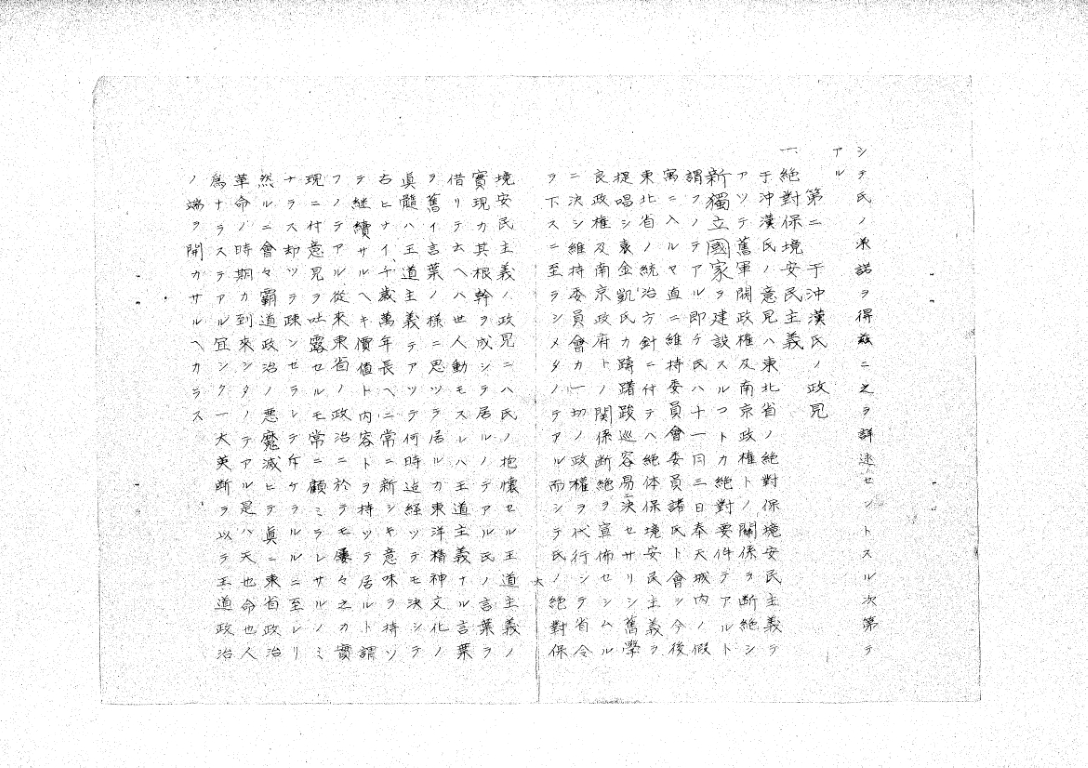 シテ氏ノ承諾ヲ得茲ニ之ヲ詳述セントスル次第テ
アル
第二 于沖漢氏ノ政見
一、絶對保境安民主義
于沖漢氏ノ意見ハ東北省ノ絶對保境安民主義テ
アツテ舊軍閥政權及南京政權トノ關係ヲ断絶シ
新獨立國家ヲ建設スルコトカ絶對要件テアルト
謂フノテアル即チ氏ハ十一月三日奉天城内ノ假
寓ニ入ルヤ直ニ維持委員會委員諸氏ト會シ今後
東北省ノ統治方針ニ付テハ絶体保境安民主義ヲ
提唱シ袁金凱氏カ躊躇踆巡容易ニ決セサリシ舊學
良政權及南京政府トノ関係断絶ヲ宣佈セシムル
ニ決シ維持委員會カ一切ノ政權ヲ代行シ省令
ヲ下スニ至ラシメタノテアル而シテ氏ノ絶對保
境安民主義ノ政見ニハ氏ノ抱懐セル王道主義ノ
實現カ其根幹ヲ成シテ居ルノテアル氏ノ言葉ヲ
借リテ云ヘハ世人動モスレハ王道主義ナル言葉
ヲ舊イ言葉ノ様ニ思ツテ居ルカ東洋精神文化ノ
眞髓ハ王道主義テアツテ何時迠経ツテモ決シテ
古ヒナイ千歳萬年長ヘニ常ニ新シキ意味ヲ持ツ
テ継續サルヘキ價値ト内容トヲ持ツテ居ルト謂
フノテアル從来東省ノ政治ニ於テモ屢々之カ實
現ニ付意見ヲ吐露セルモ常ニ顧ミラレサルノミ
ナラス却ツテ疎ンセラレテ斥ケラルルニ至レリ
然ルニ會々覇道政治ノ悪魔滅ヒ眞ニ東省政治
革命ノ時期カ到来シタノテアル是ハ天也命也人
為ナラステアル宜シク一大英断ヲ以テ王道政治
ノ端ヲ開カサルヘカラス